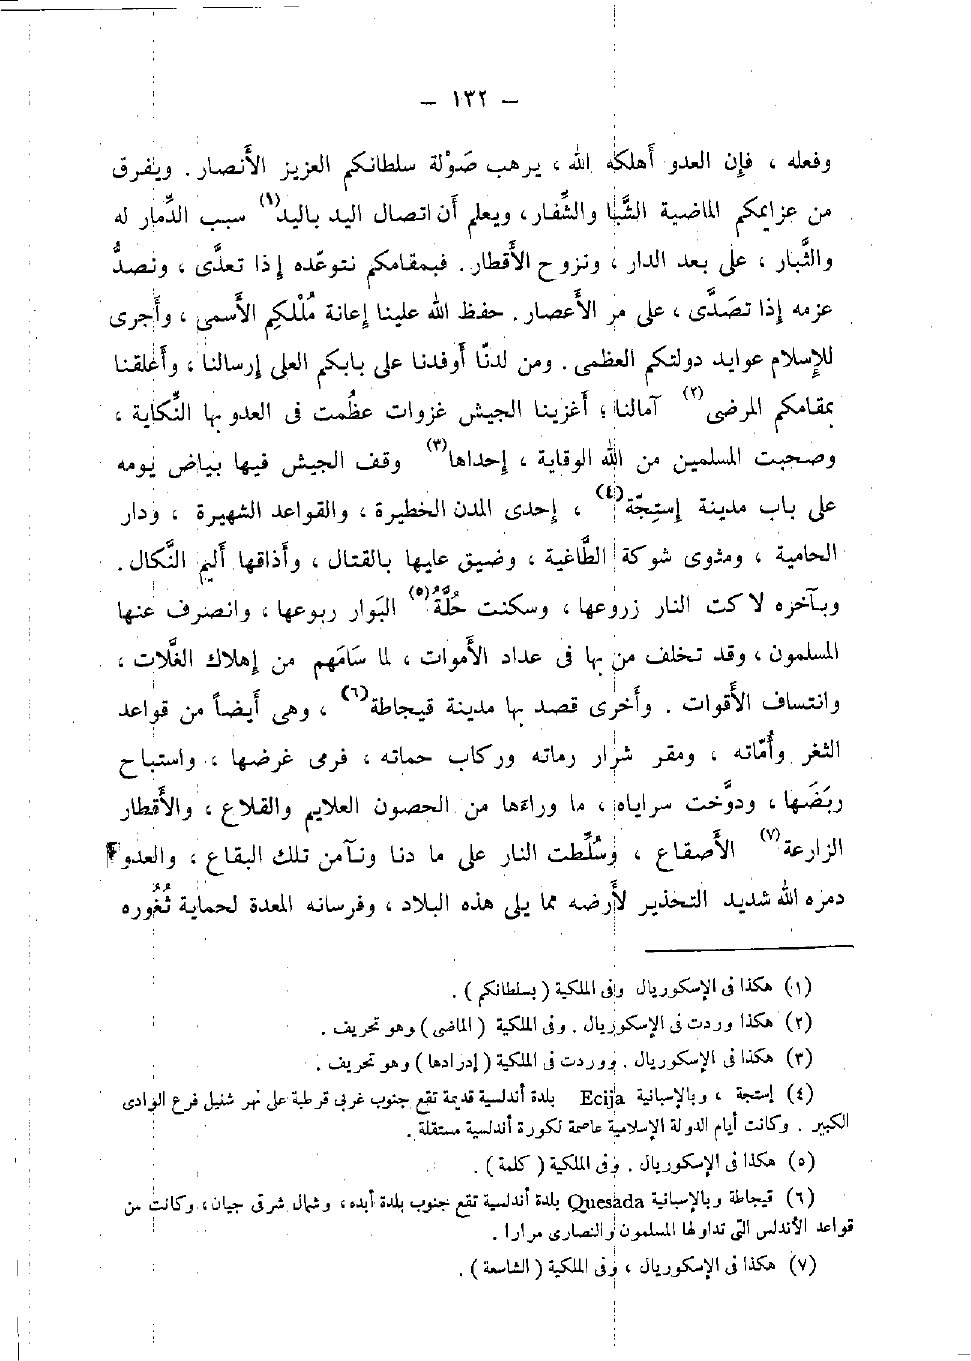 — ١٣٢ —
وفعله ، فإن العدو أهلكه الله ، يرهب صَوْلة سلطانكم العزيز الأنصار . ويفرق
من عزايمكم الماضية الشَّبا والشِّفار ، ويعلم أن اتصال اليد باليد(١) سبب الدِّمار له
والثَّبار ، على بعد الدار ، ونزوح الأقطار . فبمقامكم نتوعّده إذا تعدَّى ، ونصدُّ
عزمه إذا تصَدَّى ، على مر الأعصار . حفظ الله علينا إعانة مُلْلكِم الأسمى ، وأجرى
للإسلام عوايد دولتكم العظمى . ومن لدنّا أوفدنا على بابكم العلى إرسالنا ، وأغلقنا
بمقامكم المرضى(٢) آمالنا ؛ أغزينا الجيش غزوات عظُمت فى العدو بها النِّكاية ،
وصحبت المسلمين من الله الوقاية ، إحداها(٣) وقف الجيش فيها بياض يومه
على باب مدينة إستِجّة(٤) ، إحدى المدن الخطيرة ، والقواعد الشهيرة ، ودار
الحامية ، ومثوى شوكة الطَّاغية ، وضيق عليها بالقتال ، وأذاقها أليم النَّكال .
وبآخره لاكت النار زروعها ، وسكنت حُلَّةُ(٥) البَوار ربوعها ، وانصرف عنها
المسلمون ، وقد تخلف من بها فى عداد الأموات ، لما سَامَهم من إهلاك الغَّلات ،
وانتساف الأقوات . وأخرى قصد بها مدينة قيجاطة(٦) ، وهى أيضاً من قواعد
الثغر وأُمّاته ، ومقر شرار رماته وركاب حماته ، فرمى غرضها ، واستباح
ربَضَها ، ودوَّخت سراياه ، ما وراءها من الحصون العلايم والقلاع ، والأقطار
الزارعة(٧) الأصقاع ، وسُلِّطت النار على ما دنا ونآمن تلك البقاع ، والعدو
دمزه الله شديد التحذير لأرضه مما يلى هذه البلاد ، وفرسانه المعدة لحماية ثُغُوره
(١) هكذا فى الإسكوريال وفى الملكية ( بسلطانكم ) .
(٢) هكذا وردت فى الإسكوريال . وفى الملكية ( الماضى ) وهو تحريف .
(٣) هكذا فى الإسكوريال . ووردت فى الملكية ( إدرادها ) وهو تحريف .
(٤) إستجة ، وبالإسبانية Ecija بلدة أندلسية قديمة تقع جنوب غربى قرطبة على نهر شنيل فرع الوادى
الكبير . وكانت أيام الدولة الإسلامية عاصمة لكورة أندلسية مستقلة .
(٥) هكذا فى الإسكوريال . وفى الملكية ( كلمة ) .
(٦) قيجاطة وبالإسبانية Quesada بلدة أندلسية تقع جنوب بلدة أبده ، وشمال شرقى جيان ، وكانت من
قواعد الأندلس التى تداولها المسلمون والنصارى مرارا .
(٧) هكذا فى الإسكوريال ، وفى الملكية ( الشاسعة ) .